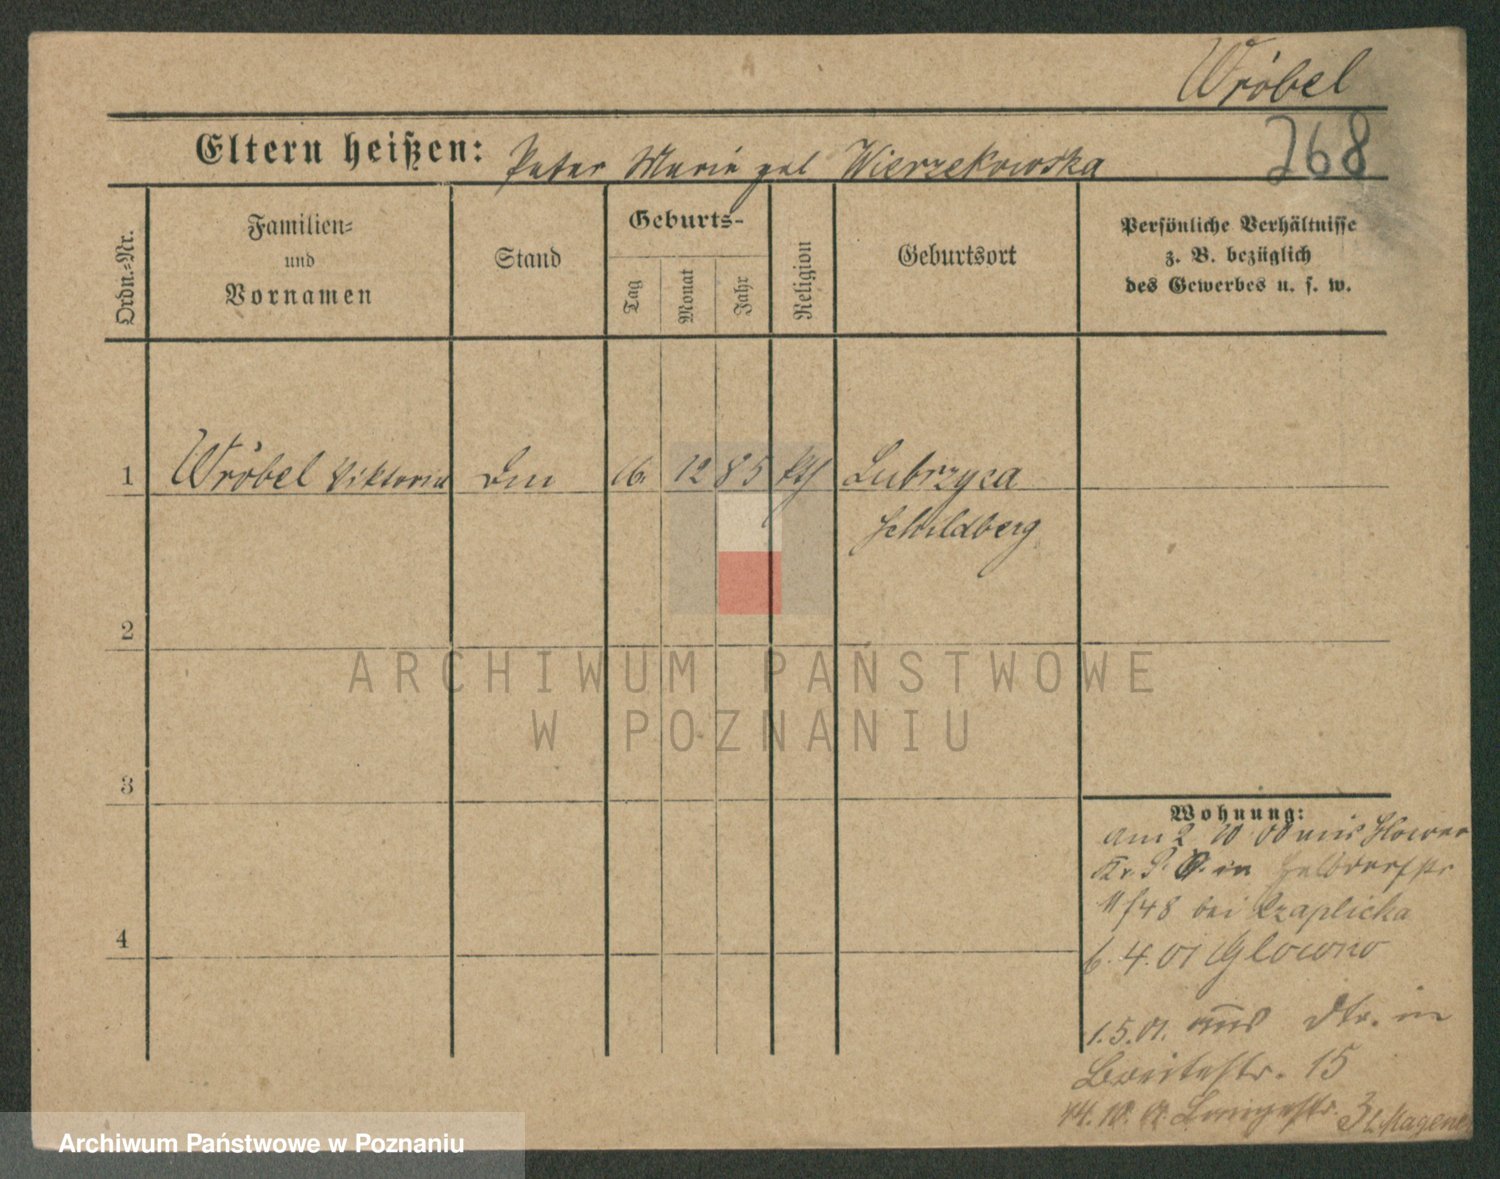 Wróbel
268
Eltern heißen: Peter Marie geb Wierzekowska
Ordn.-Nr.
Familien- und Vornamen
Stand
Geburts-
Tag
Monat
Jahr
Religion
Geburtsort
Persönliche Verhältnisse
z. B. bezüglich
des Gewerbes u. s. w.
1 Wróbel Viktoria 16. 12 85 kth Lubrzyca
Schildberg
2
3
4
Wohnung:
am 2 10 00 aus Glowno
Kr. P. O. in
11/48 bei Czaplicka
6. 4. 01 Glowno
1. 5. 01. aus dto. in
Breitestr. 15
14. 10. 01. Langestr. 3
ARCHIWUM PAŃSTWOWE
W POZNANIU
Archiwum Państwowe w Poznaniu